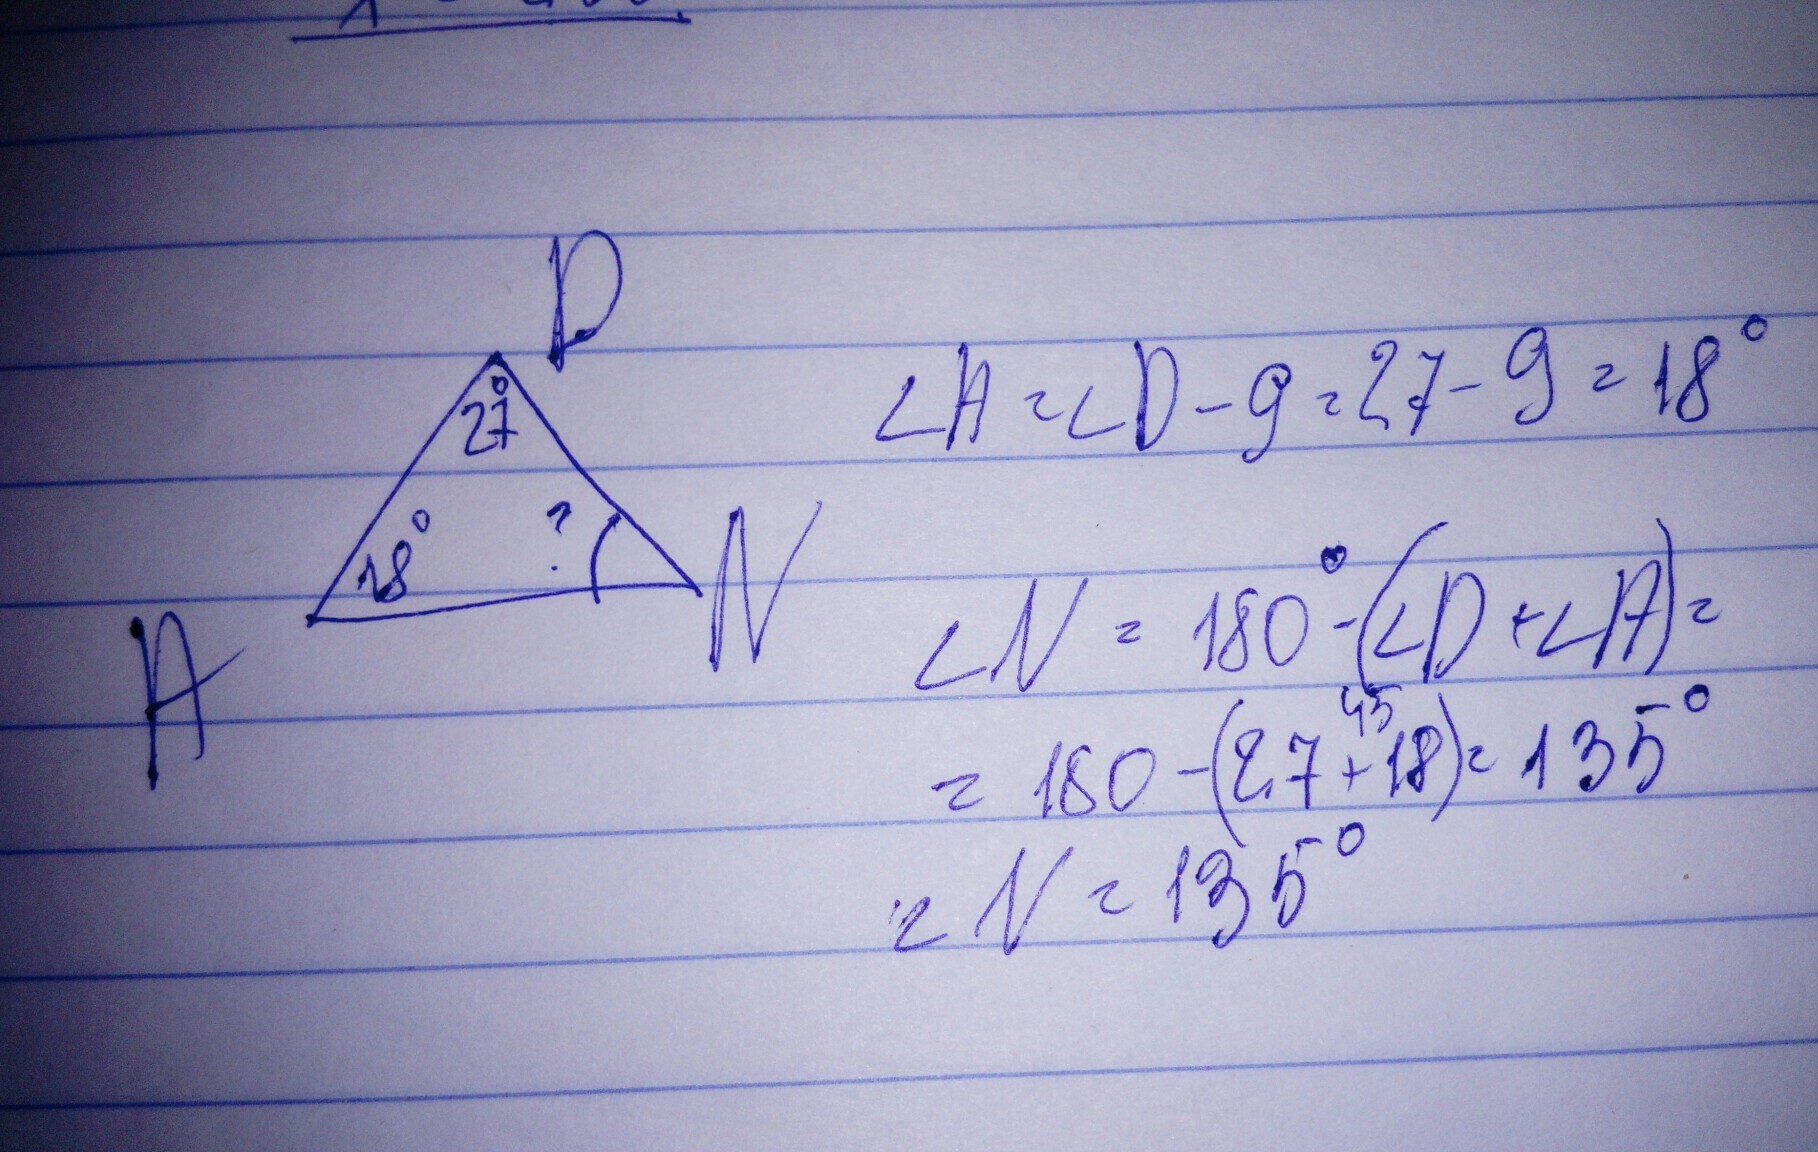 D
27°
18°
?
A
N
∠A=∠D-9=27-9=18°
∠N=180°-(∠D+∠A)=
45
=180-(27+18)=135°
∠N=135°